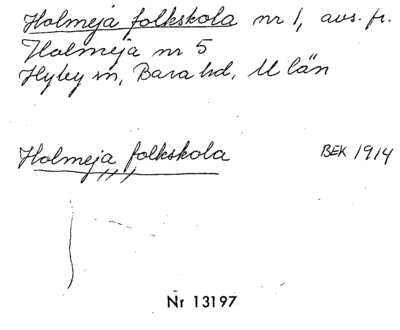 Holmeja folkskola nr 1, avs. fr.
Holmeja nr 5
Hyby sn, Bara hd, M län
Holmeja folkskola BEK 1914
Nr 13197